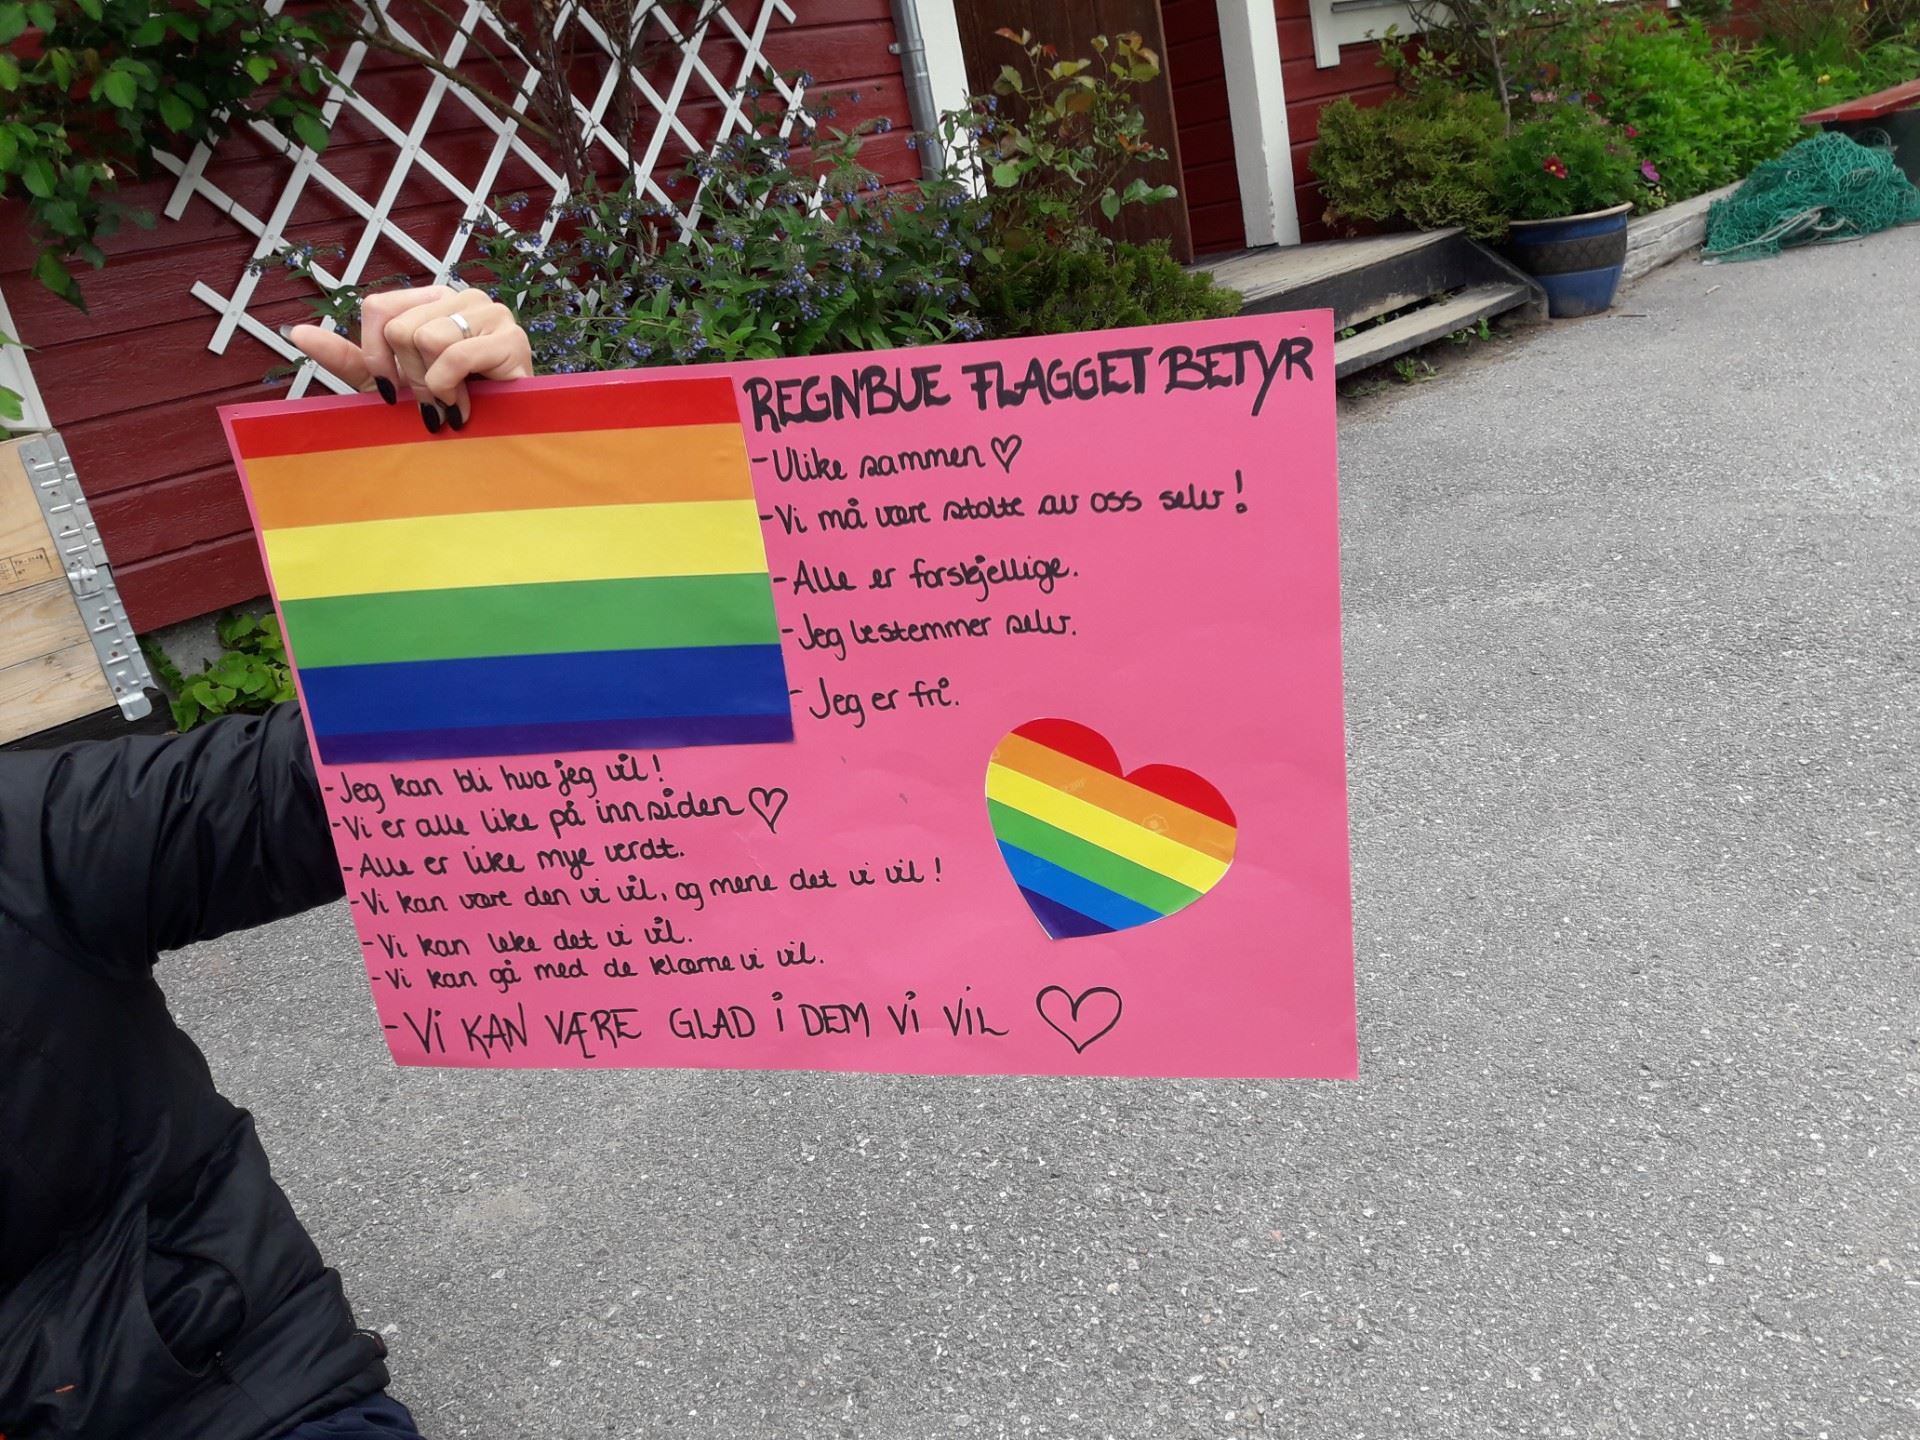 REGNBUE FLAGGET BETYR
- Ulike sammen ♡
- Vi må være stolte av oss selv!
- Alle er forskjellige.
- Jeg bestemmer selv.
- Jeg er fri.
- Jeg kan bli hva jeg vil!
- Vi er alle like på innsiden ♡
- Alle er like mye verdt.
- Vi kan være den vi vil, og mene det vi vil!
- Vi kan leke det vi vil.
- Vi kan gå med de klærne vi vil.
- Vi KAN VÆRE GLAD i DEM Vi VIL ♡